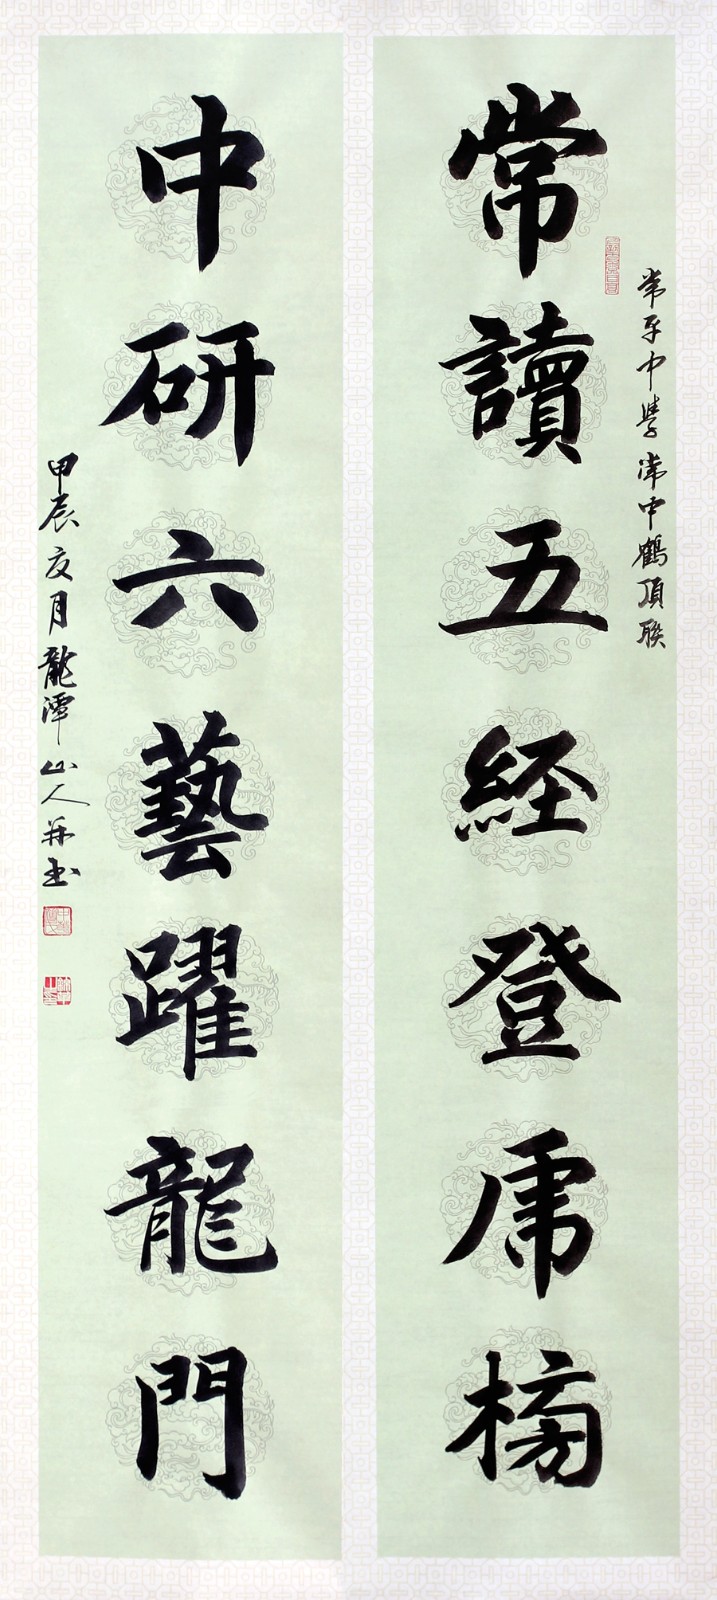 常平中學常中鶴頂联
常讀五経登乕榜
中研六藝躍龍門
甲辰夏月龍潭山人并书